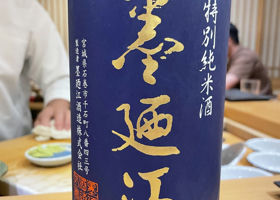 特別純米酒
墨廼江
宮城県石巻市千石町八番四三号
製造者 墨廼江酒造株式会社